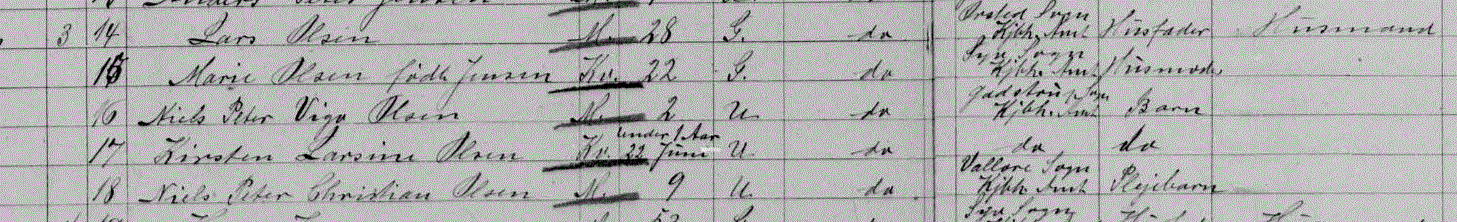 Ørsted Sogn
3 14 Lars Olsen M. 28 G. do Kjbh. Amt Husfader Husmand
Syv Sogn
15 Marie Olsen født Jensen Kv. 22 G. do Kjbh. Amt Husmoder
Gadstrup Sogn
16 Niels Peter Vigo Olsen M. 2 U. do Kjbh. Amt Barn
under 1 Aar
17 Kirsten Larsine Olsen Kv. 22 Juni U. do do do
Valløre Sogn
18 Niels Peter Christian Olsen M. 9 U. do Kjbh. Amt Plejebarn
Syv Sogn